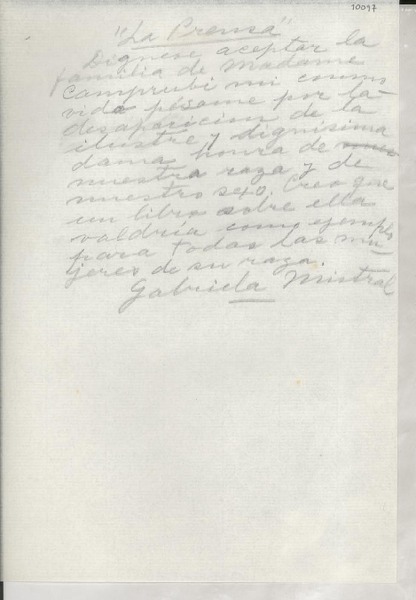 10097
"La Prensa"
Dignese aceptar la
familia de Madame
Camprubi mi conmo
vido pésame por la
desaparicion de la
ilustre y dignísima
dama, honra de
nuestra raza y de
nuestro sexo. Creo que
un libro sobre ella
valdría como ejemplo
para todas las mu-
jeres de su raza.
Gabriela Mistral